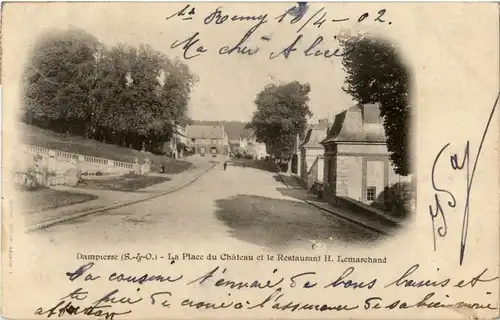 St Remy 18/4-02.
Ma cher Alice
Dampierre (S.-&-O.) - La Place du Château et le Restaurant H. Lemarchand
Ta cousine t'envoie de bons baisers et
te prie de croire à l'assurance de sa bien vive
affection